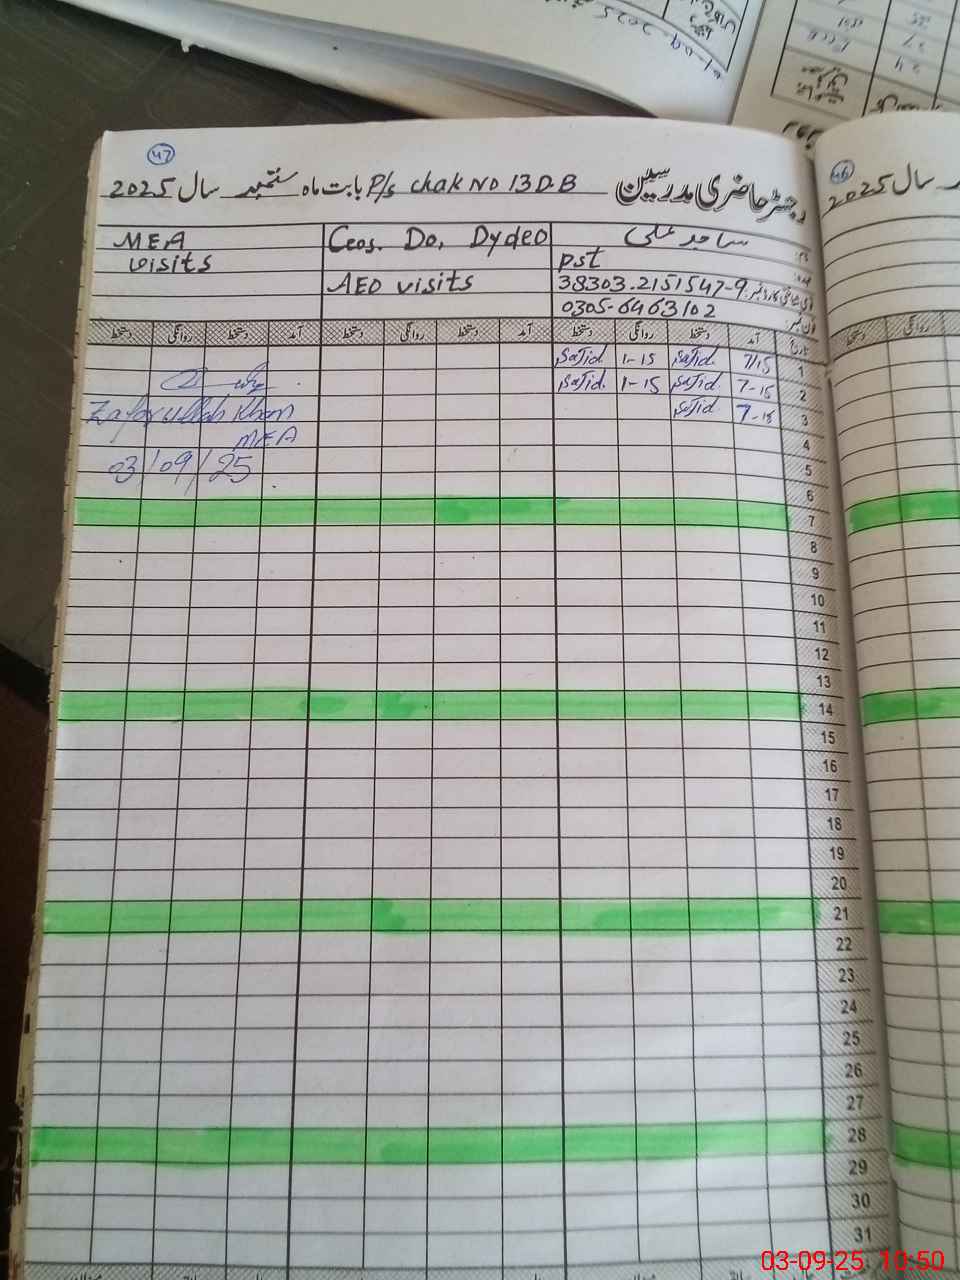 47
رجسٹر حاضری مدرسین P/s chak No 13 D.B بابت ماہ ستمبر سال 2025
ساجد علی
Ceos. Do, Dydeo
MEA
pst
visits
38303-2151547-9
AEO visits
0305-6463102
آمد دستخط روانگی دستخط آمد دستخط روانگی دستخط آمد دستخط روانگی دستخط
1 7/15 Sajid 1-15 Sajid
2 7-15 Sajid 1-15 Sajid
3 7-15 Sajid
Zafarullah Khan
4
MEA
5
03/09/25
6
7
8
9
10
11
12
13
14
15
16
17
18
19
20
21
22
23
24
25
26
27
28
29
30
31
46
سال 2025
دستخط روانگی
03-09-25 10:50